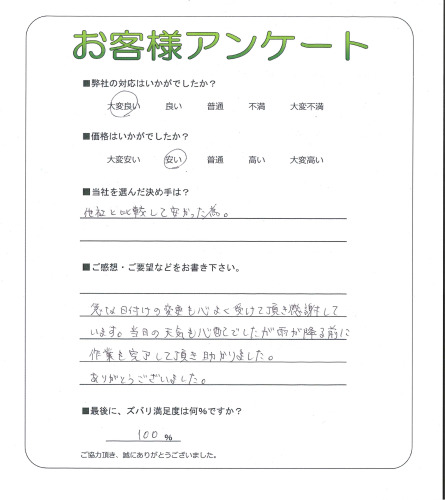 お客様アンケート
■弊社の対応はいかがでしたか？
大変良い 良い 普通 不満 大変不満
■価格はいかがでしたか？
大変安い 安い 普通 高い 大変高い
■当社を選んだ決め手は？
他社と比較して安かった為。
■ご感想・ご要望などをお書き下さい。
急な日付けの変更も心よく受けて頂き感謝して
います。当日の天気も心配でしたが雨が降る前に
作業も完了して頂き助かりました。
ありがとうございました。
■最後に、ズバリ満足度は何％ですか？
100 ％
ご協力頂き、誠にありがとうございました。